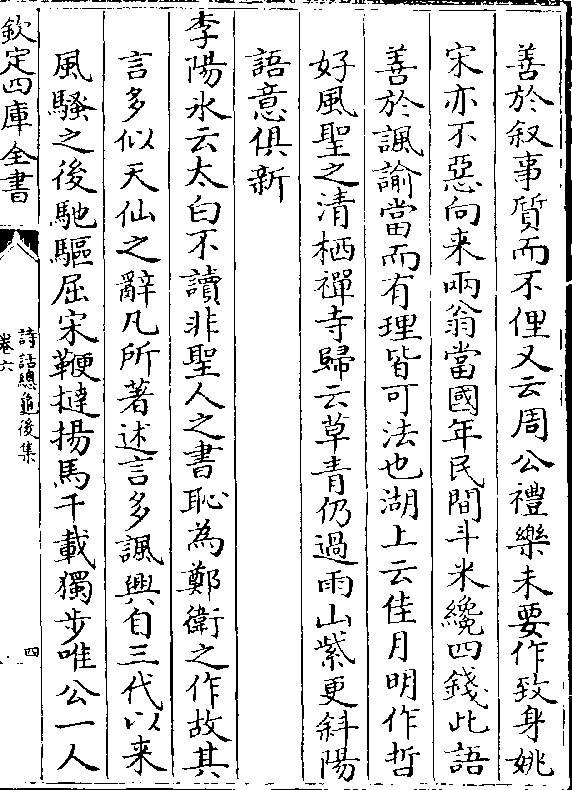 善於叙事質而不俚又云周公禮樂未要作致身姚
宋亦不惡向来兩翁當國年民間斗米纔四錢此語
善於諷諭當而有理皆可法也湖上云佳月明作哲
好風聖之清栖禪寺歸云草青仍過雨山紫更斜陽
語意俱新
李陽冰云太白不讀非聖人之書恥為鄭衛之作故其
言多似天仙之辭凡所著述言多諷興自三代以来
風騷之後馳驅屈宋鞭撻揚馬千載獨步唯公一人
欽定四庫全書
詩話總龜後集
卷六
四